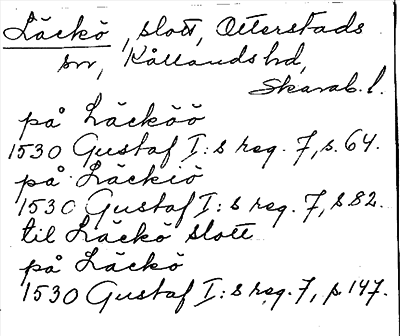 Läckö, slott, Otterstads
sn, Kållands hd,
Skarab. l.
på Läcköö
1530 Gustaf I:s reg. 7, s. 64.
på Läckiö
1530 Gustaf I:s reg. 7, s 82.
til Läckö slott
på Läckö
1530 Gustaf I:s reg. 7, p 147.